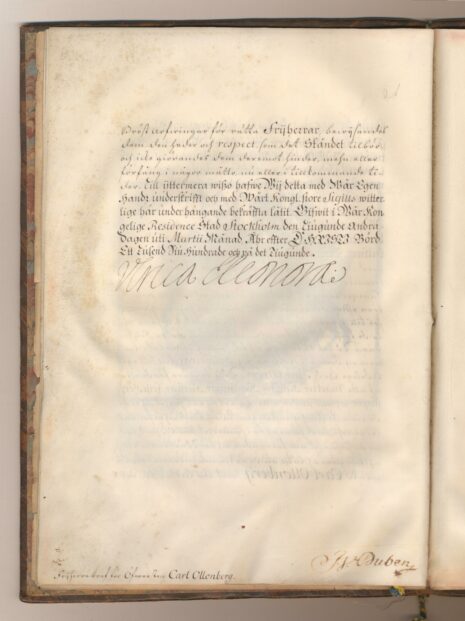 Bröst arfwingar för rätta Frijherrar, bewijsandes
dem den heder och respect, som det Ståndet tilbör,
och icke giörandes dem deremot hinder, mehn eller
förfång i någor måtto, nu eller i tillkommande ti-
der. Till ÿttermera wißo hafwe Wij detta med Wår Egen
Handz underskrifft och med Wårt Kongl. store Sigills witter-
lige här under hängande bekräffta låtit. Gifwit i Wår Kon-
gelige Residence Stad Stockholm den Tiugunde Andra
Dagen uti Martii Månad, Åhr effter CHRISTI Börd
Ett Tusend Siu Hundrade och på det Tiugunde.
Ulrica Eleonora
JvDuben
Frijherre bref för Carl Ottenberg.